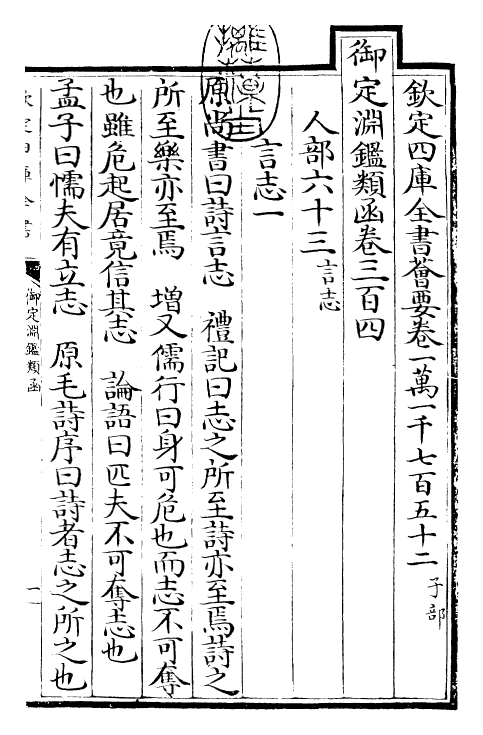 欽定四庫全書薈要卷一萬一千七百五十二 子部
御定淵鑑類函卷三百四
人部六十三 言志
言志一
原尚書曰詩言志 禮記曰志之所至詩亦至焉詩之
所至樂亦至焉 增又儒行曰身可危也而志不可奪
也雖危起居竟信其志 論語曰匹夫不可奪志也
孟子曰懦夫有立志 原毛詩序曰詩者志之所之也
欽定四庫全書
御定淵鑑類函
一